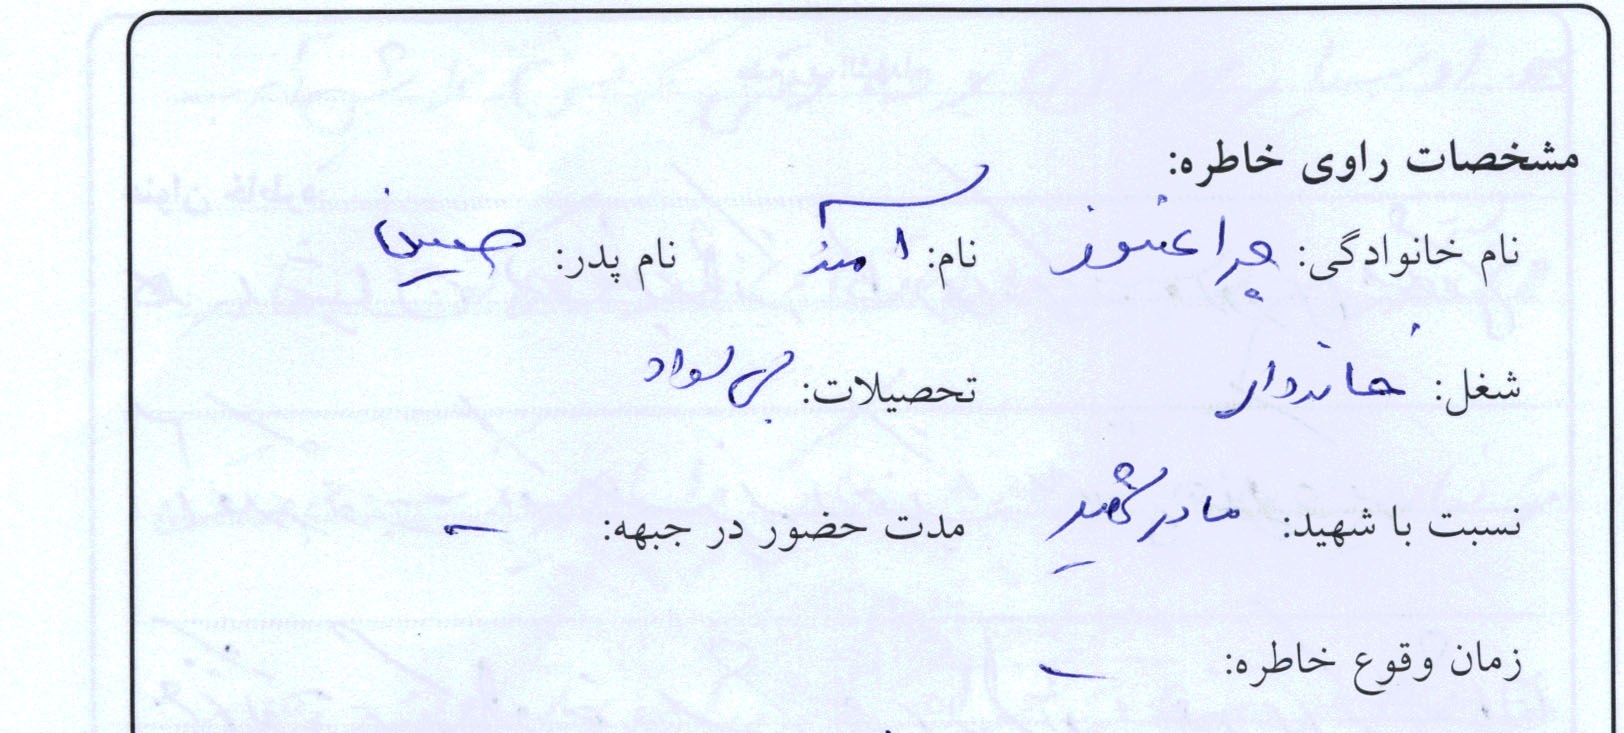 مشخصات راوی خاطره:
نام خانوادگی: چراغسوز نام: آمنه نام پدر: حسین
شغل: خانه‌دار تحصیلات: بی سواد
نسبت با شهید: مادر شهید مدت حضور در جبهه: -
زمان وقوع خاطره: -